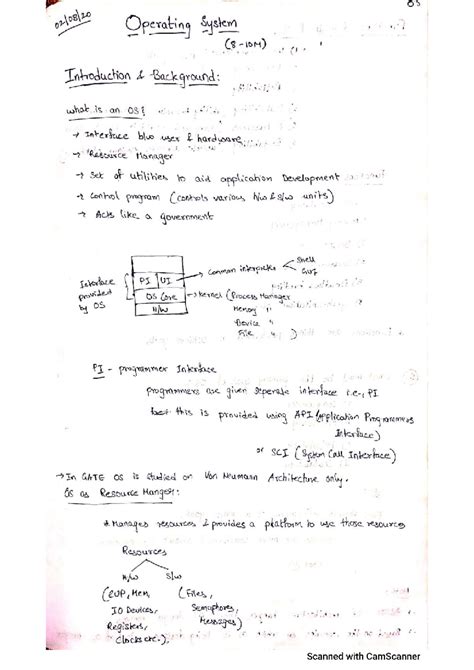 02/08/20
Operating System
(8-10M)
Introduction & Background:
what is an OS?
→ Interface b/w user & hardware
→ Resource Manager
→ Set of utilities to aid application Development
→ control program (controls various h/w & s/w units)
→ Acts like a government
Interface provided by OS
PI | UI → Common interpreter < Shell
GUI
OS Core → Kernel (Process Manager
H/W
Memory "
Device "
File " )
PI - programmer Interface
programmers use given seperate interface i.e., PI
this is provided using API (Application Programmers
Interface)
or SCI (System Call Interface)
→ In GATE OS is studied on Von Neumann Architecture only.
OS as Resource Manger:
* Manages resources & provides a platform to use those resources
Resources
H/w S/w
(CUP, Mem, (Files,
IO Devices, Semaphores,
Registers, Messages)
Clocks etc.),
Scanned with CamScanner